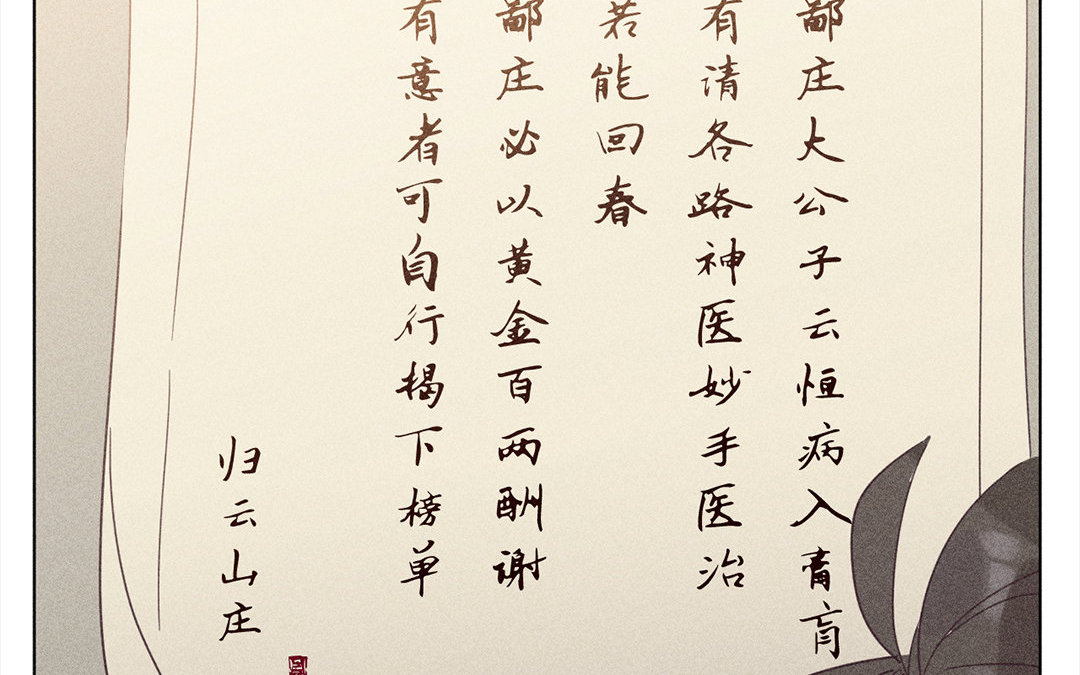 鄙庄大公子云恒病入膏肓
有请各路神医妙手医治
若能回春
鄙庄必以黄金百两酬谢
有意者可自行揭下榜单
归云山庄